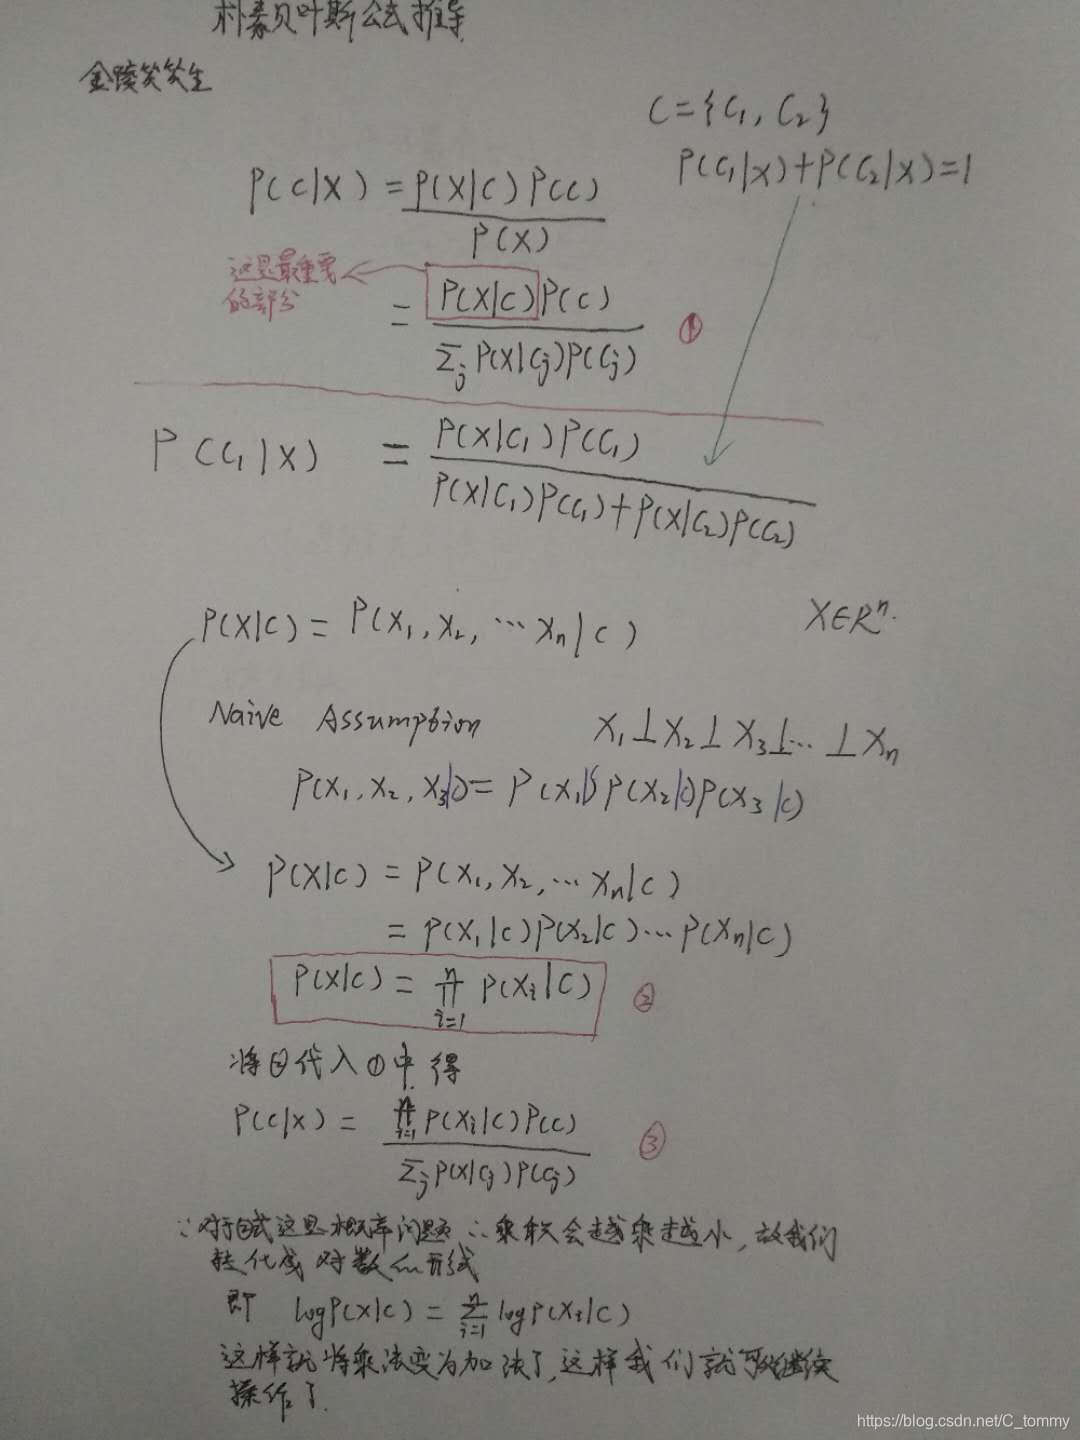 朴素贝叶斯公式推导
金陵笑笑生
C={C₁, C₂}
P(C₁|X)+P(C₂|X)=1
P(C|X) = P(X|C) P(C) / P(X)
这是最重要
的部分
= P(X|C)P(C) / Σⱼ P(X|Cⱼ)P(Cⱼ) ①
P(C₁|X) = P(X|C₁)P(C₁) / P(X|C₁)P(C₁)+P(X|C₂)P(C₂)
P(X|C) = P(X₁, X₂, ⋯ Xₙ|C) X∈Rⁿ.
Naive Assumption X₁⊥X₂⊥X₃⊥⋯⊥Xₙ
P(X₁, X₂, X₃|C) = P(X₁|C)P(X₂|C)P(X₃|C)
P(X|C) = P(X₁, X₂, ⋯ Xₙ|C)
= P(X₁|C)P(X₂|C)⋯P(Xₙ|C)
P(X|C) = ∏ⁿᵢ₌₁ P(Xᵢ|C) ②
将②代入①中得
P(C|X) = ∏ⁿᵢ₌₁ P(Xᵢ|C)P(C) / Σⱼ P(X|Cⱼ)P(Cⱼ) ③
∵对于②式这是概率问题 ∴乘积会越乘越小, 故我们
转化成对数的形式
即 logP(X|C) = Σⁿᵢ₌₁ logP(Xᵢ|C)
这样就将乘法变为加法了, 这样我们就可以继续
操作了.
https://blog.csdn.net/C_tommy